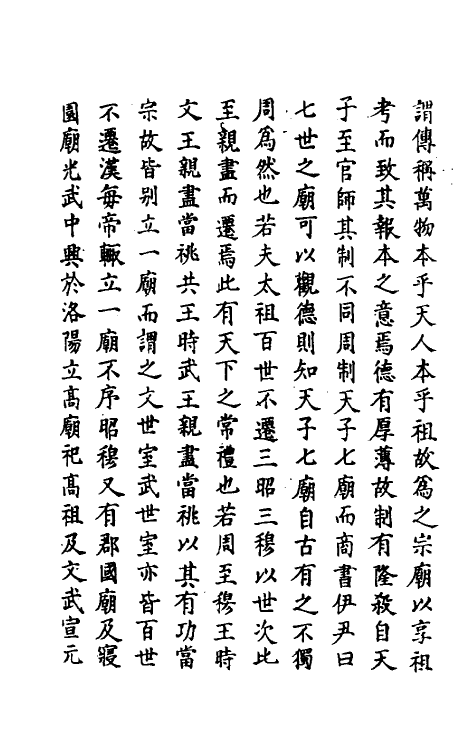 謂傳稱萬物本乎天人本乎祖故為之宗廟以享祖
考而致其報本之意焉德有厚薄故制有隆殺自天
子至官師其制不同周制天子七廟而商書伊尹曰
七世之廟可以觀德則知天子七廟自古有之不獨
周為然也若夫太祖百世不遷三昭三穆以世次比
至親盡而遷焉此有天下之常禮也若周至穆王時
文王親盡當祧共王時武王親盡當祧以其有功當
宗故皆别立一廟而謂之文世室武世室亦皆百世
不遷漢每帝輙立一廟不序昭穆又有郡國廟及寢
園廟光武中興於洛陽立髙廟祀髙祖及文武宣元